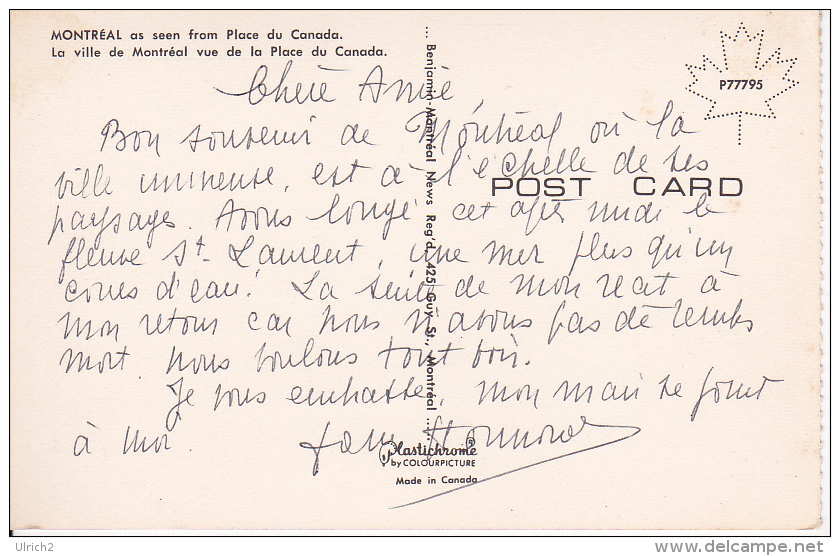 MONTRÉAL as seen from Place du Canada.
La ville de Montréal vue de la Place du Canada.
P77795
Chère Amie,
Bon souvenir de Montréal où la
ville immense, est à l'échelle de ses
POST CARD
paysages. Avons longé cet après midi le
fleuve St. Laurent, une mer plus qu'un
cours d'eau! La suite de mon récit à
mon retour car nous n'avons pas de temps
mort, nous voulons tout voir.
Je vous embrasse, mon mari se joint
à moi.
... Benjamin-Montréal News Reg'd. 425 Guy St., Montréal ...
Plastichrome
by COLOURPICTURE
Made in Canada
Ulrich2
www.delcampe.net